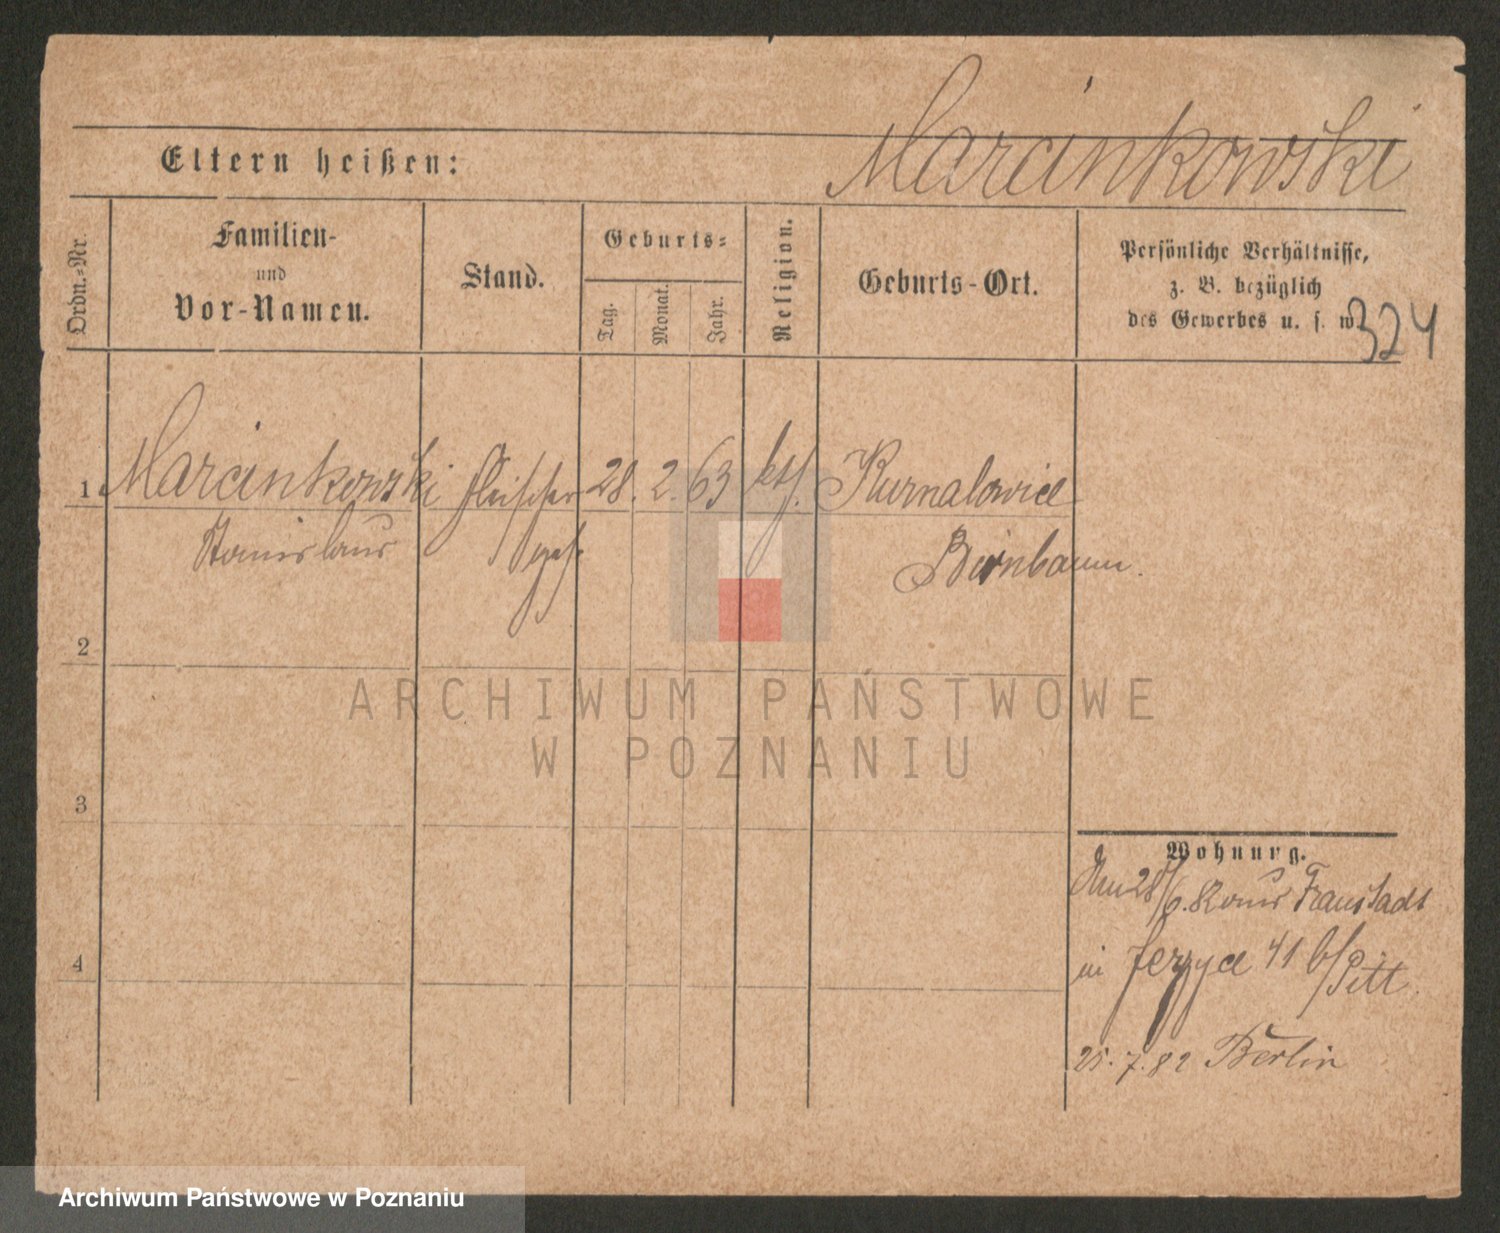 Marcinkowski
Eltern heißen:
Ordn.-Nr.
Familien-
und
Vor-Namen.
Stand.
Geburts-
Tag.
Monat.
Jahr.
Religion.
Geburts-Ort.
Persönliche Verhältnisse,
z. B. bezüglich
des Gewerbes u. s. w.
324
1 Marcinkowski Fleischer 28. 2. 63 kth. Kurnatowice
Stanislaus ges. Birnbaum.
2
3
4
Wohnung.
Am 28/6. 82 aus Fraustadt
in Jerzyce 41 b/Pitt.
25. 7. 82 Berlin
ARCHIWUM PAŃSTWOWE
W POZNANIU
Archiwum Państwowe w Poznaniu